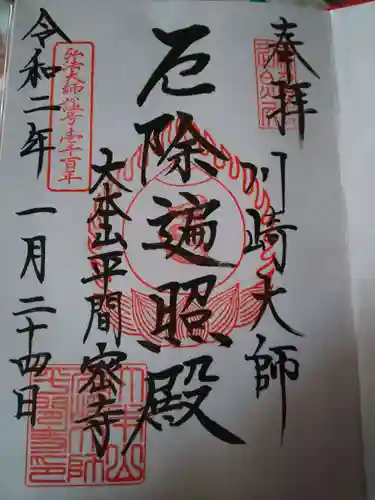 奉拝
川崎大師
厄除遍照殿
大本山平間密寺
弘法大師諡号壱千百年
令和二年 一月二十四日